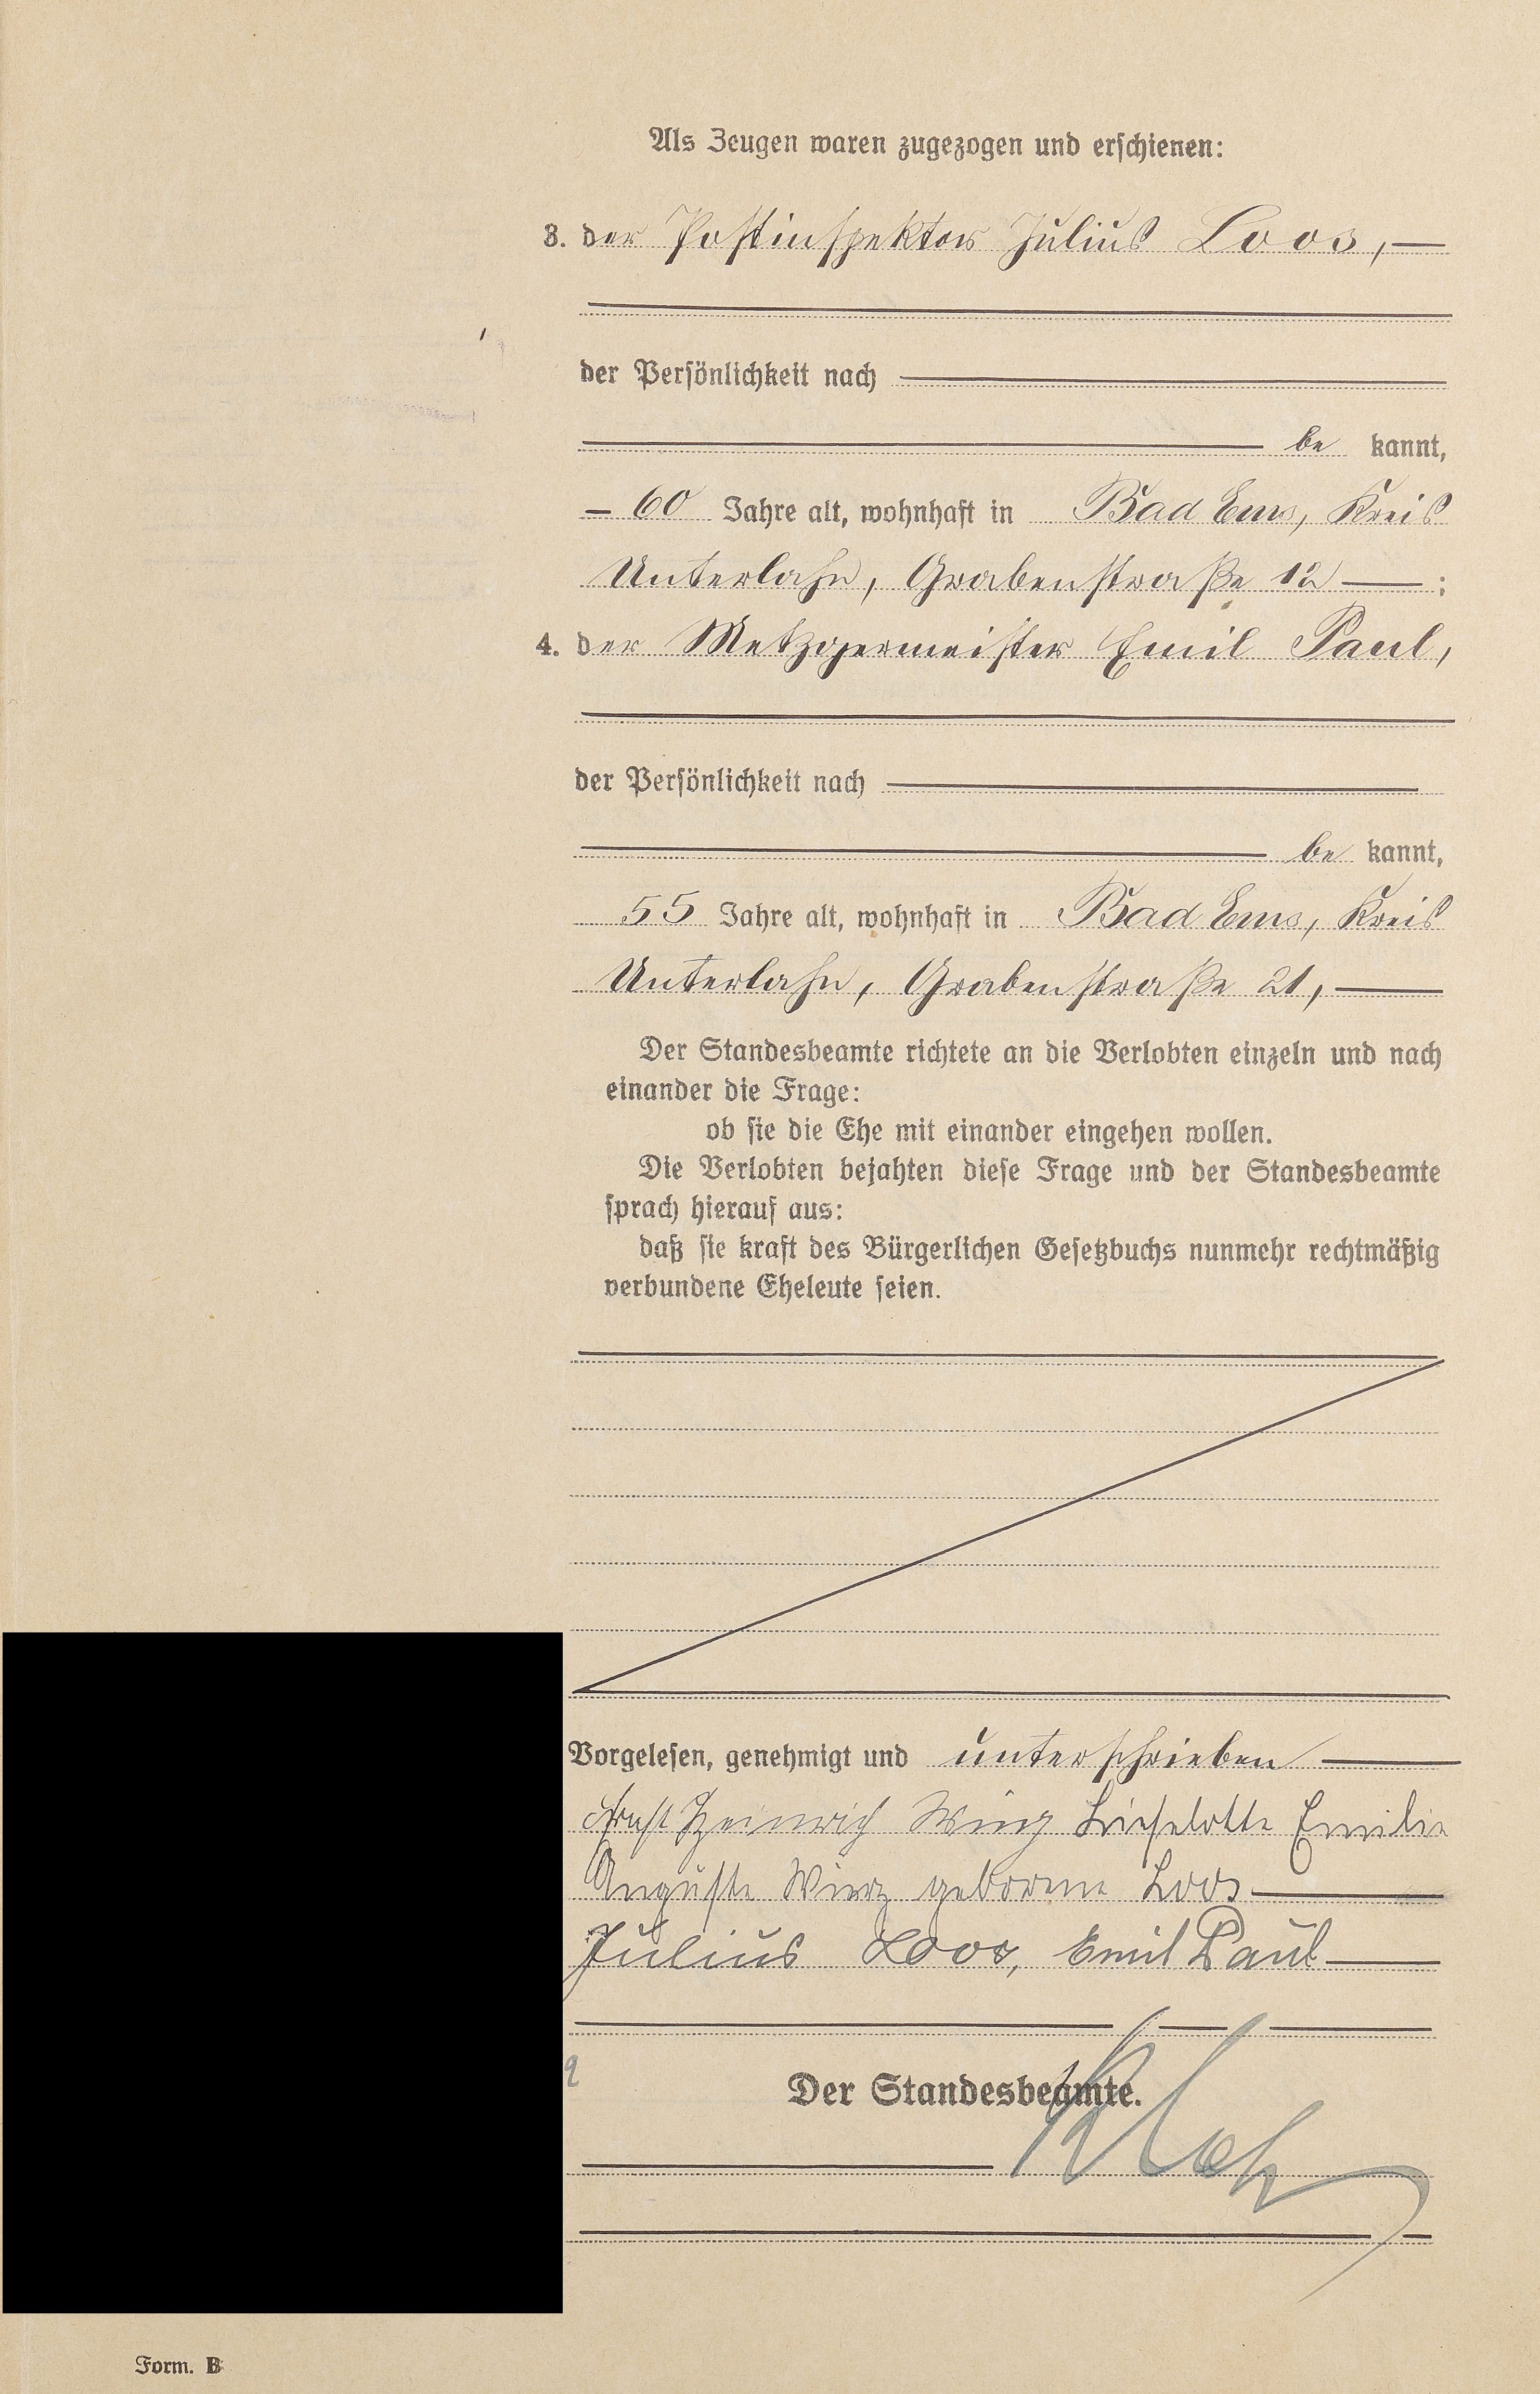 Als Zeugen waren zugezogen und erschienen:
3. der Postinspektor Julius Loos,
der Persönlichkeit nach
be kannt,
60 Jahre alt, wohnhaft in Bad Ems, Kreis
Unterlahn, Grabenstraße 12 ;
4. der Metzgermeister Emil Paul,
der Persönlichkeit nach
be kannt,
55 Jahre alt, wohnhaft in Bad Ems, Kreis
Unterlahn, Grabenstraße 21,
Der Standesbeamte richtete an die Verlobten einzeln und nach
einander die Frage:
ob sie die Ehe mit einander eingehen wollen.
Die Verlobten bejahten diese Frage und der Standesbeamte
sprach hierauf aus:
daß sie kraft des Bürgerlichen Gesetzbuchs nunmehr rechtmäßig
verbundene Eheleute seien.
Vorgelesen, genehmigt und unterschrieben
Ernst Heinrich Lieselotte Emilie
Auguste Wirz geborene Loos
Julius Loos, Emil Paul
Der Standesbeamte.
Form. B